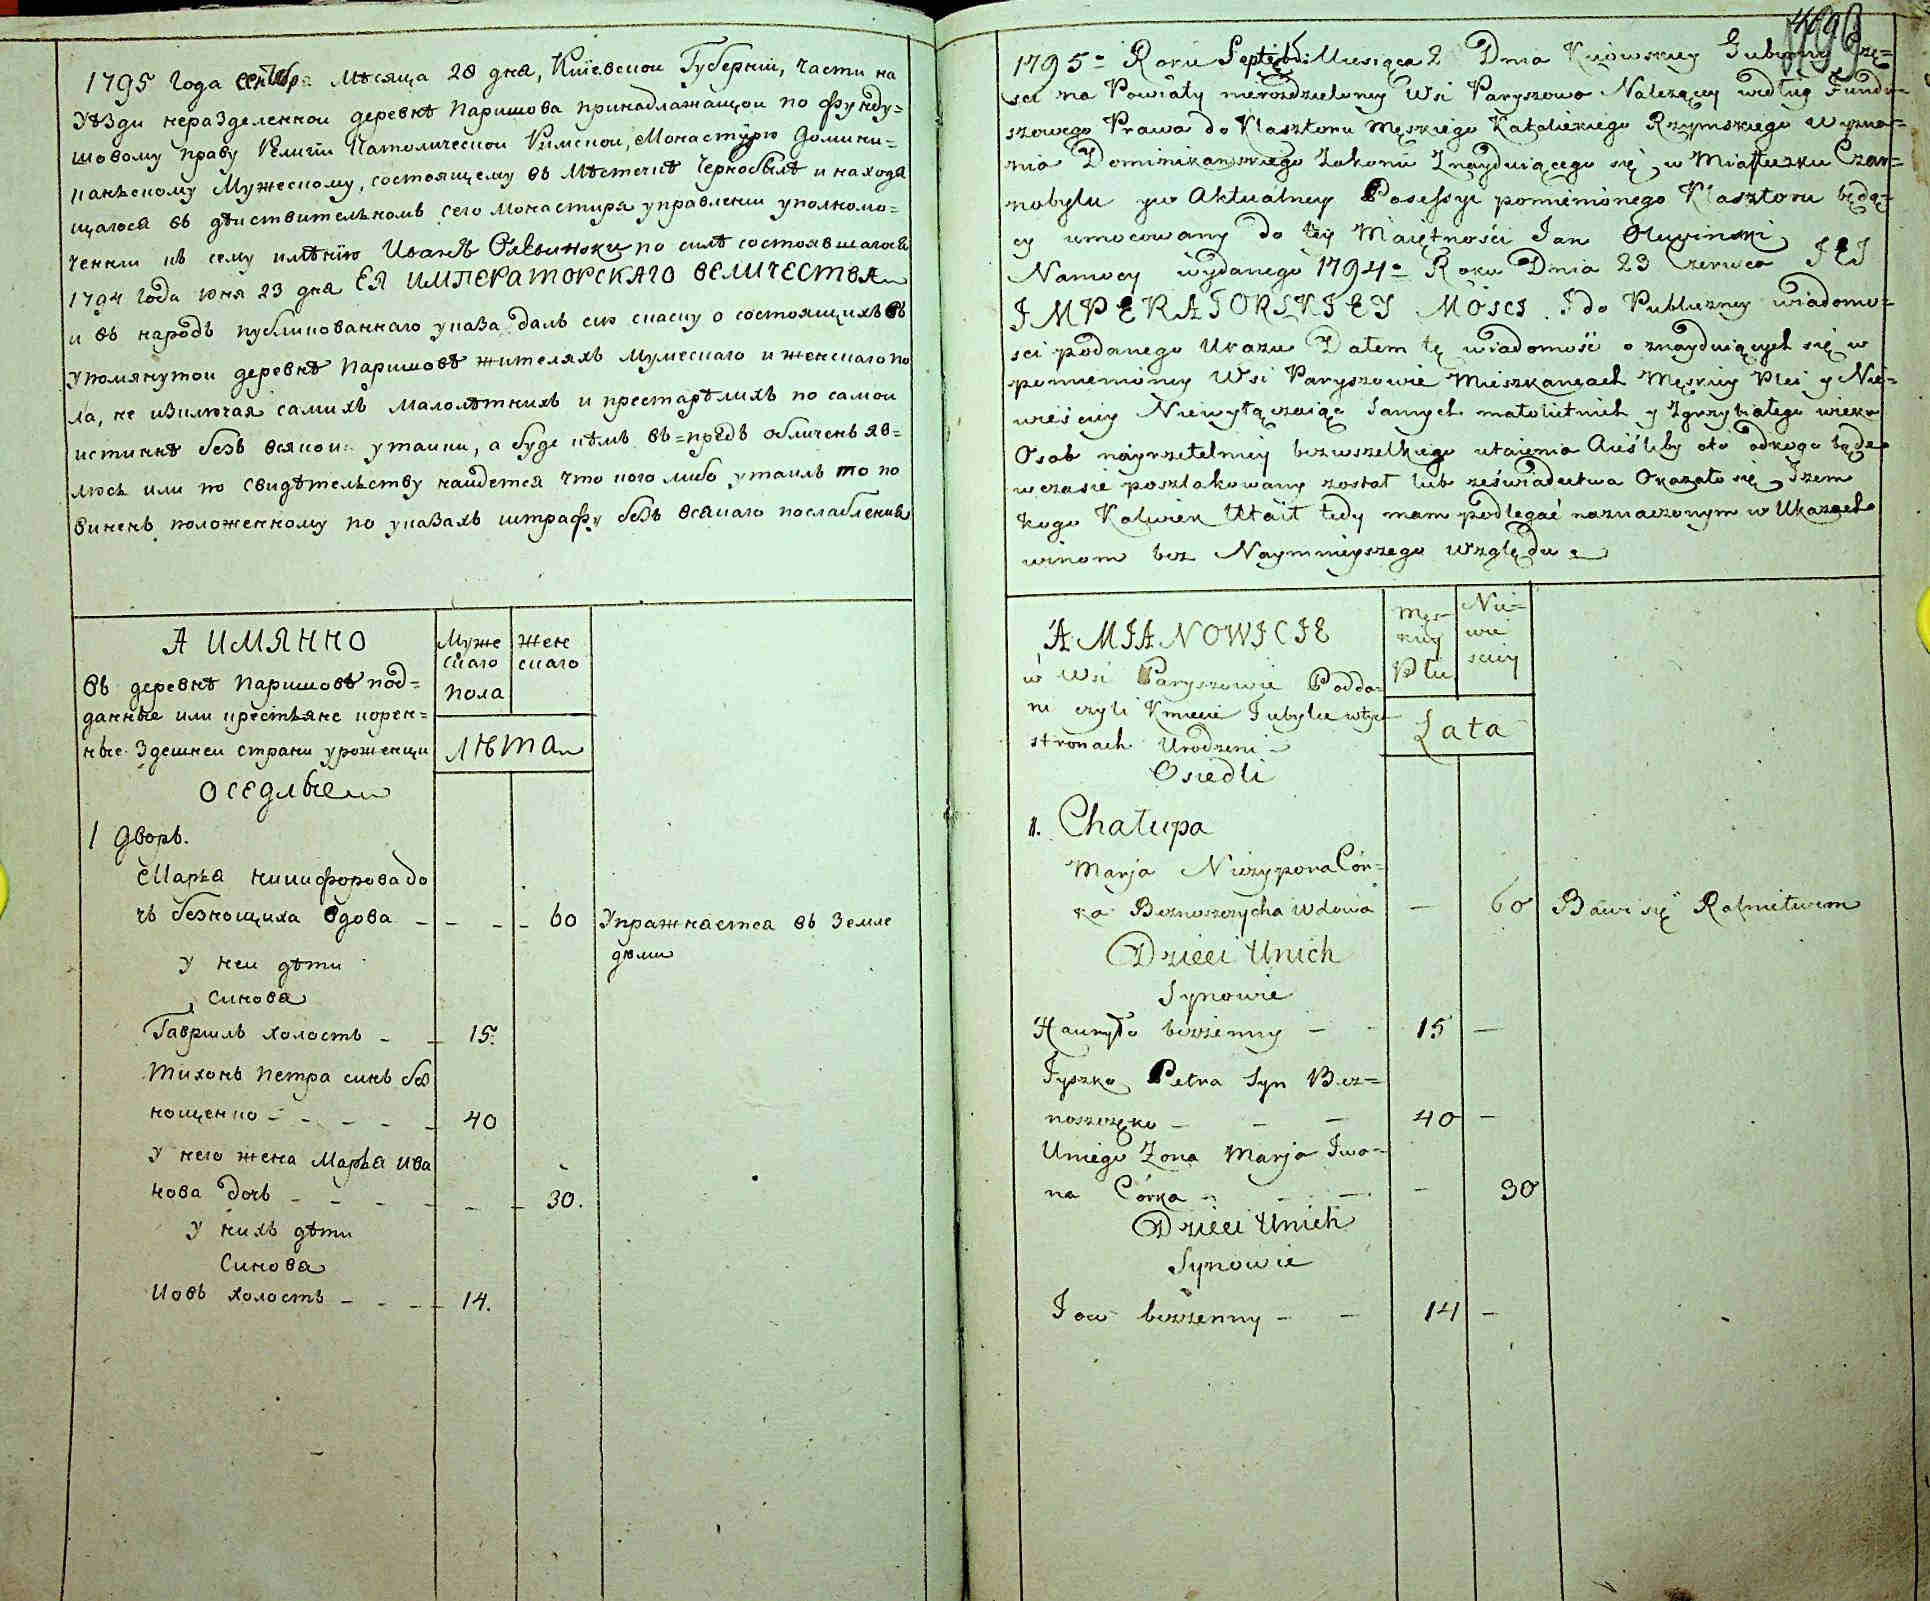 1795 Года сентября Мѣсяца 28 дня, Кіевской Губерніи, части на
Уѣзди неразделенной деревнѣ Паришова принадлажащой по фунду=
шовому праву Религіи Католической Римской, Монастырю Домини=
канѣскому Мужескому, состоящему въ Мѣстечкѣ Чернобылѣ и находя
щагося въ дѣиствительномъ сего Монастиря управленіи уполномо=
ченіи къ сему имѣнію Иванъ Олѣвински по силѣ состоявшагося
1794 Года юня 23 дня ЕЯ ИМПЕРАТОРСКАГО ВЕЛИЧЕСТВА
и въ народъ публикованнаго указа далъ сію скаску о состоящихъ въ
упомянутой деревнѣ Паришовѣ жителяхъ мужескаго и женскаго по
ла, не изключая самихъ малолѣтнихъ и престарѣлихъ по самой
истиннѣ безъ всякой утайки, а буде кѣмъ въ=предъ обличенъ яв=
люсь или по свидѣтельству найдется что кого либо утаилъ то по
виненъ положенному по указахъ штрафу безъ всякаго послабленія
А ИМЯННО
Въ деревнѣ Паришовѣ под=
данные или крестьяне корен=
ные Здешней страни уроженци
Муже
скаго
пола
жен
скаго
ЛѢТА
ОСЕДЛЫЕ
1 Дворъ.
Марья Никифорова до
чъ безнощиха вдова - - - - 60 Упражнается въ Земле
дѣли
У ней дѣти
Синова
Гаврилъ холостъ - - 15.
Тихонъ Петра синъ без
нощенко - - - - - 40
У него жена Марья Ива
нова дочь - - - - - - 30.
У нихъ дѣти
Синова
Иовъ холостъ - - - - 14.
1795= Roku Septembr: Miesiąca 2 Dnia Kijowskiey Gubernij Czę=
sci na Powiaty nierozdzieloney Wsi Paryszowo Nalezącey według Fundu=
szowego Prawa do Klasztoru Męskiego Katolickiego Rzymskiego wyzna=
nia Dominikanskiego Zakonu Znayduiącego się w Miasteczku Czar=
nobylu yw Aktualney Possessyi pomienionego Klasztoru będą=
cy umocowany do tey Maiętności Jan Olewinski
Namocy wydanego 1794= Roku Dnia 23 Czerwca JEJ
IMPERATORSKIEY MOSCI. Ido Publiczney wiadomo=
sci podanego Ukazu Dałem tę wiadomość o znayduiących się w
pomienioney Wsi Paryszowie Mieszkancach Męskiey Płci y Nie=
wieściey Niewyłączaiąc samych małoletnich y Zgrzybiałego wieku
Osob nayrzetelniey bezwszelkiego utaienia Aieśliby oto odkogo bądz
wczasie poszlakowany został lub zeświadectwa Okazało się Iżem
Kogo Kolwiek Utaił tedy mam podlegać naznaczonym w Ukazach
winom bez Naymnieyszego względu
A MIANOWICIE
w Wsi Paryszowie Podda=
ni czyli Kmiecie Tubylcy wtych
stronach Urodzeni
Męs=
kiey
Płci
Nie=
wie
sciey
Lata
Osiedli
1. Chałupa
Marja Niczypora Cór=
ka Beznoszczycha Wdowa — 60 Bawi się Rolnictwem
Dzieci Unich
Synowie
Hawryło bezżenny - - 15 —
Tyszko Petra Syn Bez=
noszczęko - - - 40 —
Uniego Zona Marja Iwa=
na Córka - - - — 30
Dzieci Unich
Synowie
Jow bezżenny - - 14 —